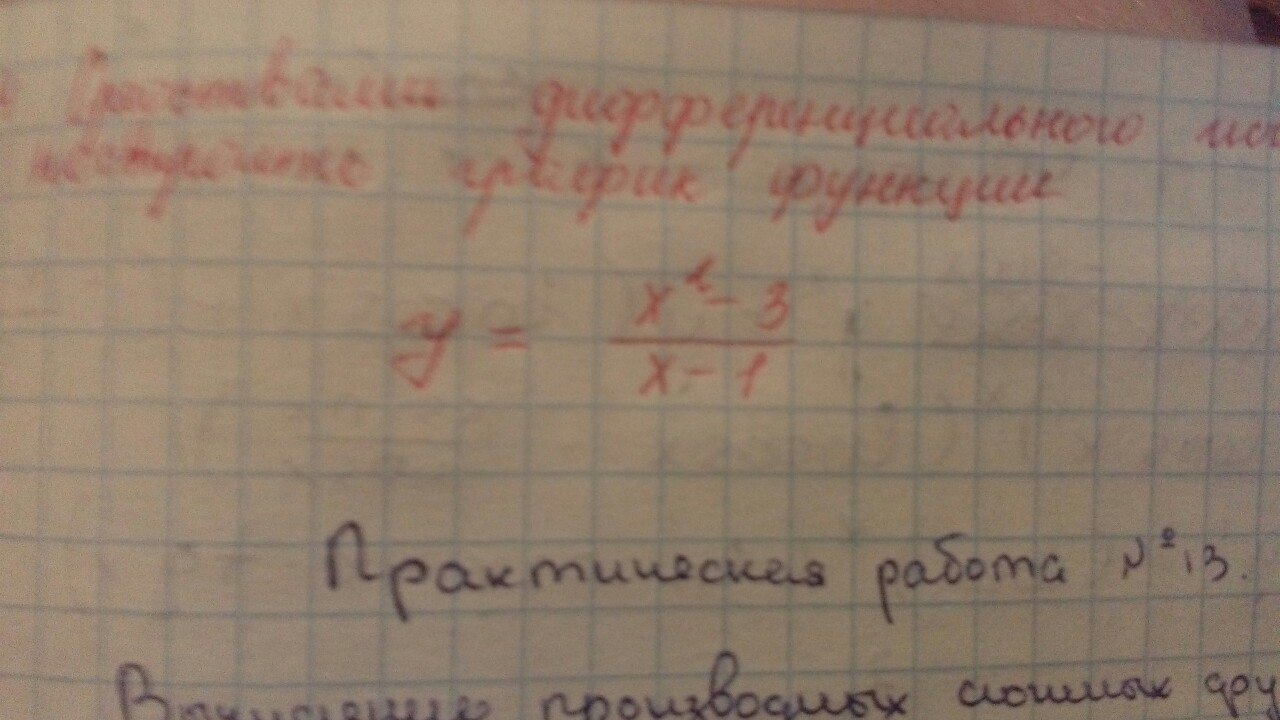 Средствами дифференциального ис
постройте график функции
y = x² - 3 / x - 1
Практическая работа №13.
Вычисление производных сложных фу